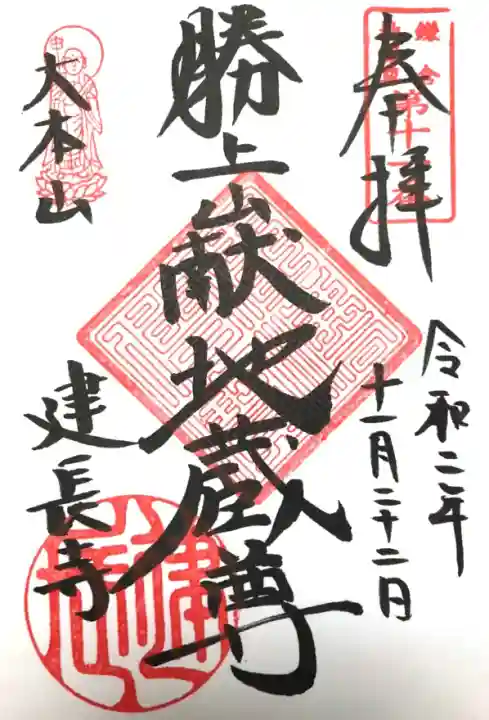 奉拝
令和二年
十一月二十二日
勝上献地蔵尊
大本山
建長寺